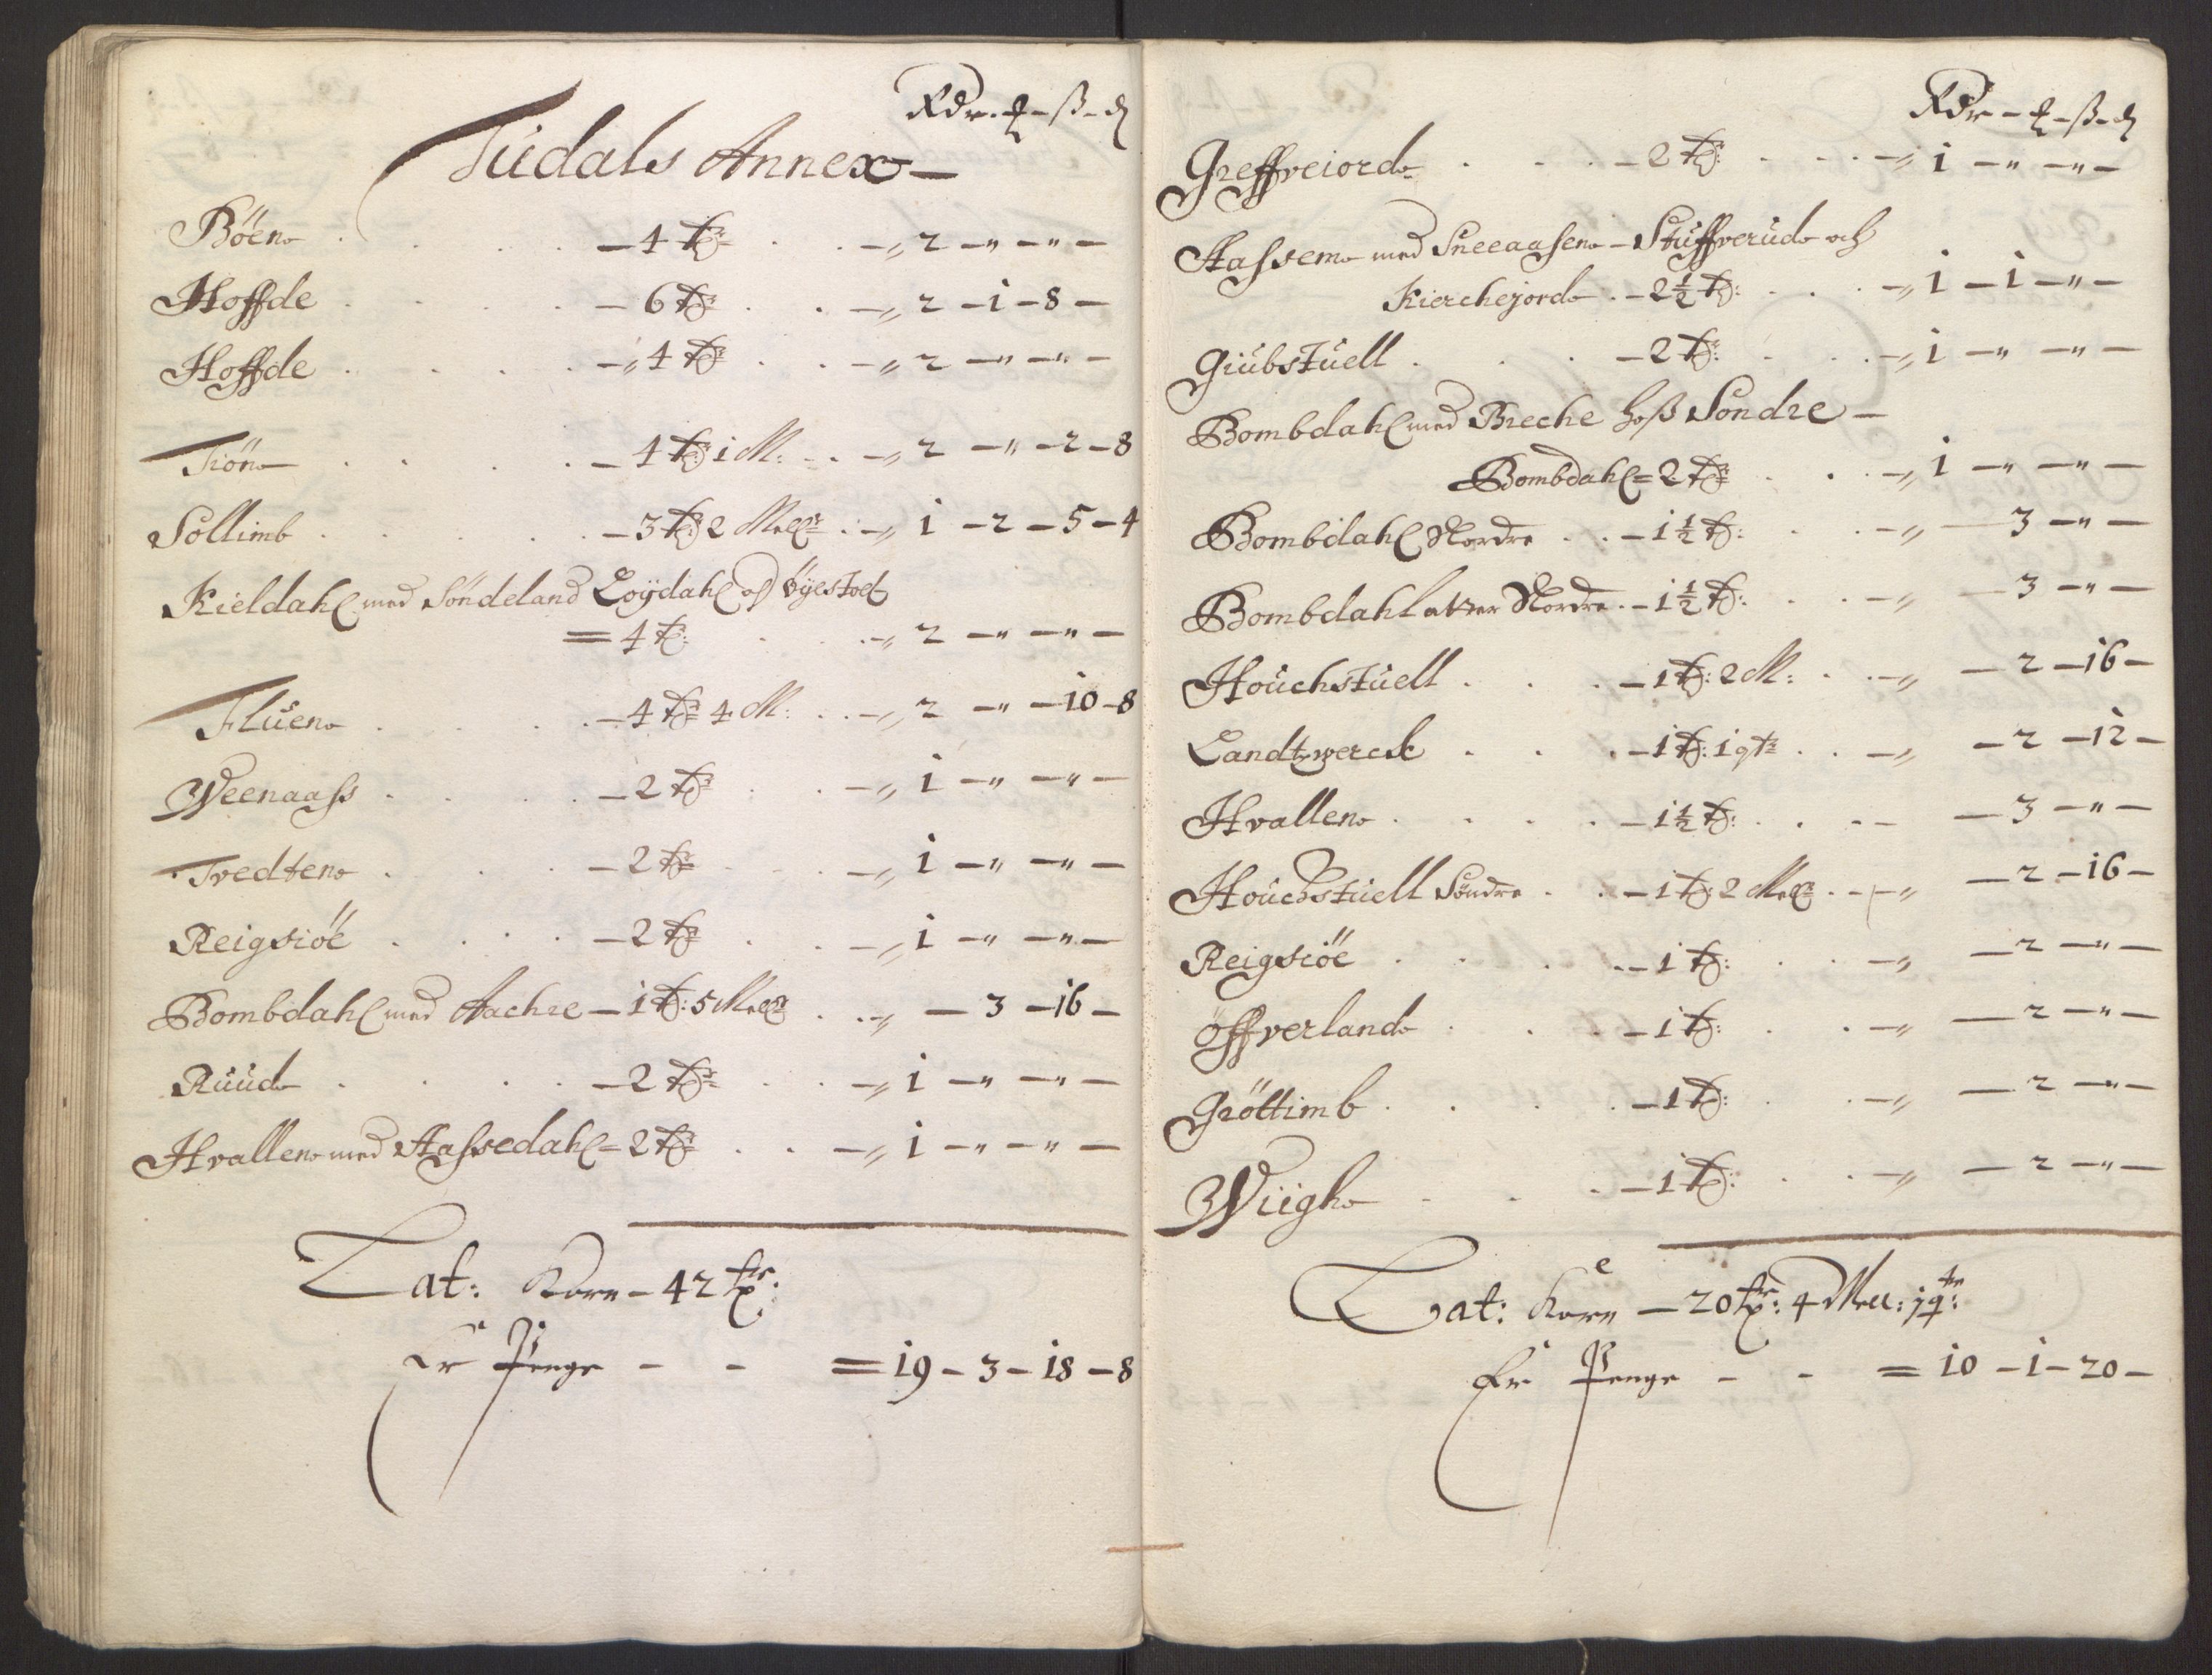 Rdr. - ʒ - ß - ₰
Tudals Annex
Böen - 4 tr - 2 - " - " -
Hoffde - 6 tr - 2 - 1 - 8 -
Hoffde - 4 tr - 2 - " - " -
Tiön - 4 tr 1 M: - 2 - " - 2 - 8
Sollimb - 3 tr 2 Mell - 1 - 2 - 5 - 4
Kieldahl med Söndeland Loÿdahl og Öÿestoel
= 4 tr: - 2 - " - " -
Flüen - 4 tr 4 M: - 2 - " - 10 - 8
Weenaass - 2 tr - 1 - " - " -
Tvedten - 2 tr - 1 - " - " -
Reigsiöe - 2 tr - 1 - " - " -
Bombdahl med Aachre - 1 tr: 5 Mell - 3 - 16 -
Ruud - 2 tr - 1 - " - " -
Hvallen med Hassedahl = 2 tr - 1 - " - " -
Lat: Korn - 42 tr:
Er Penge - - = 19 - 3 - 18 - 8
Rdr - ʒ - ß - ₰
Greffveiord - 2 tr: - 1 - " - " -
Hassem med Sneeaasen - Stuffverud och
Kierchejord - 2 1/2 tr: - 1 - 1 - " -
Giübstuell - 2 tr: - 1 - " - " -
Bombdahl med Breche hoß Sondre -
Bombdahl = 2 tr - 1 - " - " -
Bombdahl Nordre - 1 1/2 tr: - 3 - " -
Bombdahl atter Nordre - 1 1/2 tr: - 3 - " -
Houchstuell - 1 tr: 2 M: - 2 - 16 -
Landtzverck - 1 tr: 1 qtr - 2 - 12 -
Hvallen - 1 1/2 tr: - 3 - " -
Houchstuell Söndre - 1 tr: 2 Mell - 2 - 16 -
Reigsiöe - 1 tr: - 2 - " -
Öffverland - 1 tr: - 2 - " -
Gröttimb - 1 tr: - 2 - " -
Wiigh - 1 tr: - 2 - " -
Lat: Korn - 20 tr: 4 Mell: 1 qtr:
Er Penge - - = 10 - 1 - 20 -